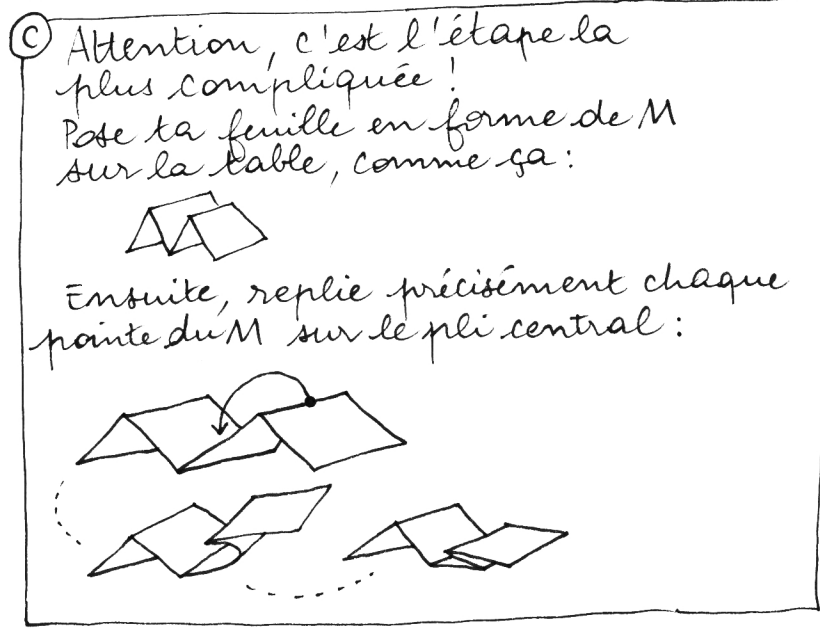 C Attention, c'est l'étape la
plus compliquée !
Pose ta feuille en forme de M
sur la table, comme ça :
Ensuite, replie précisément chaque
pointe du M sur le pli central :